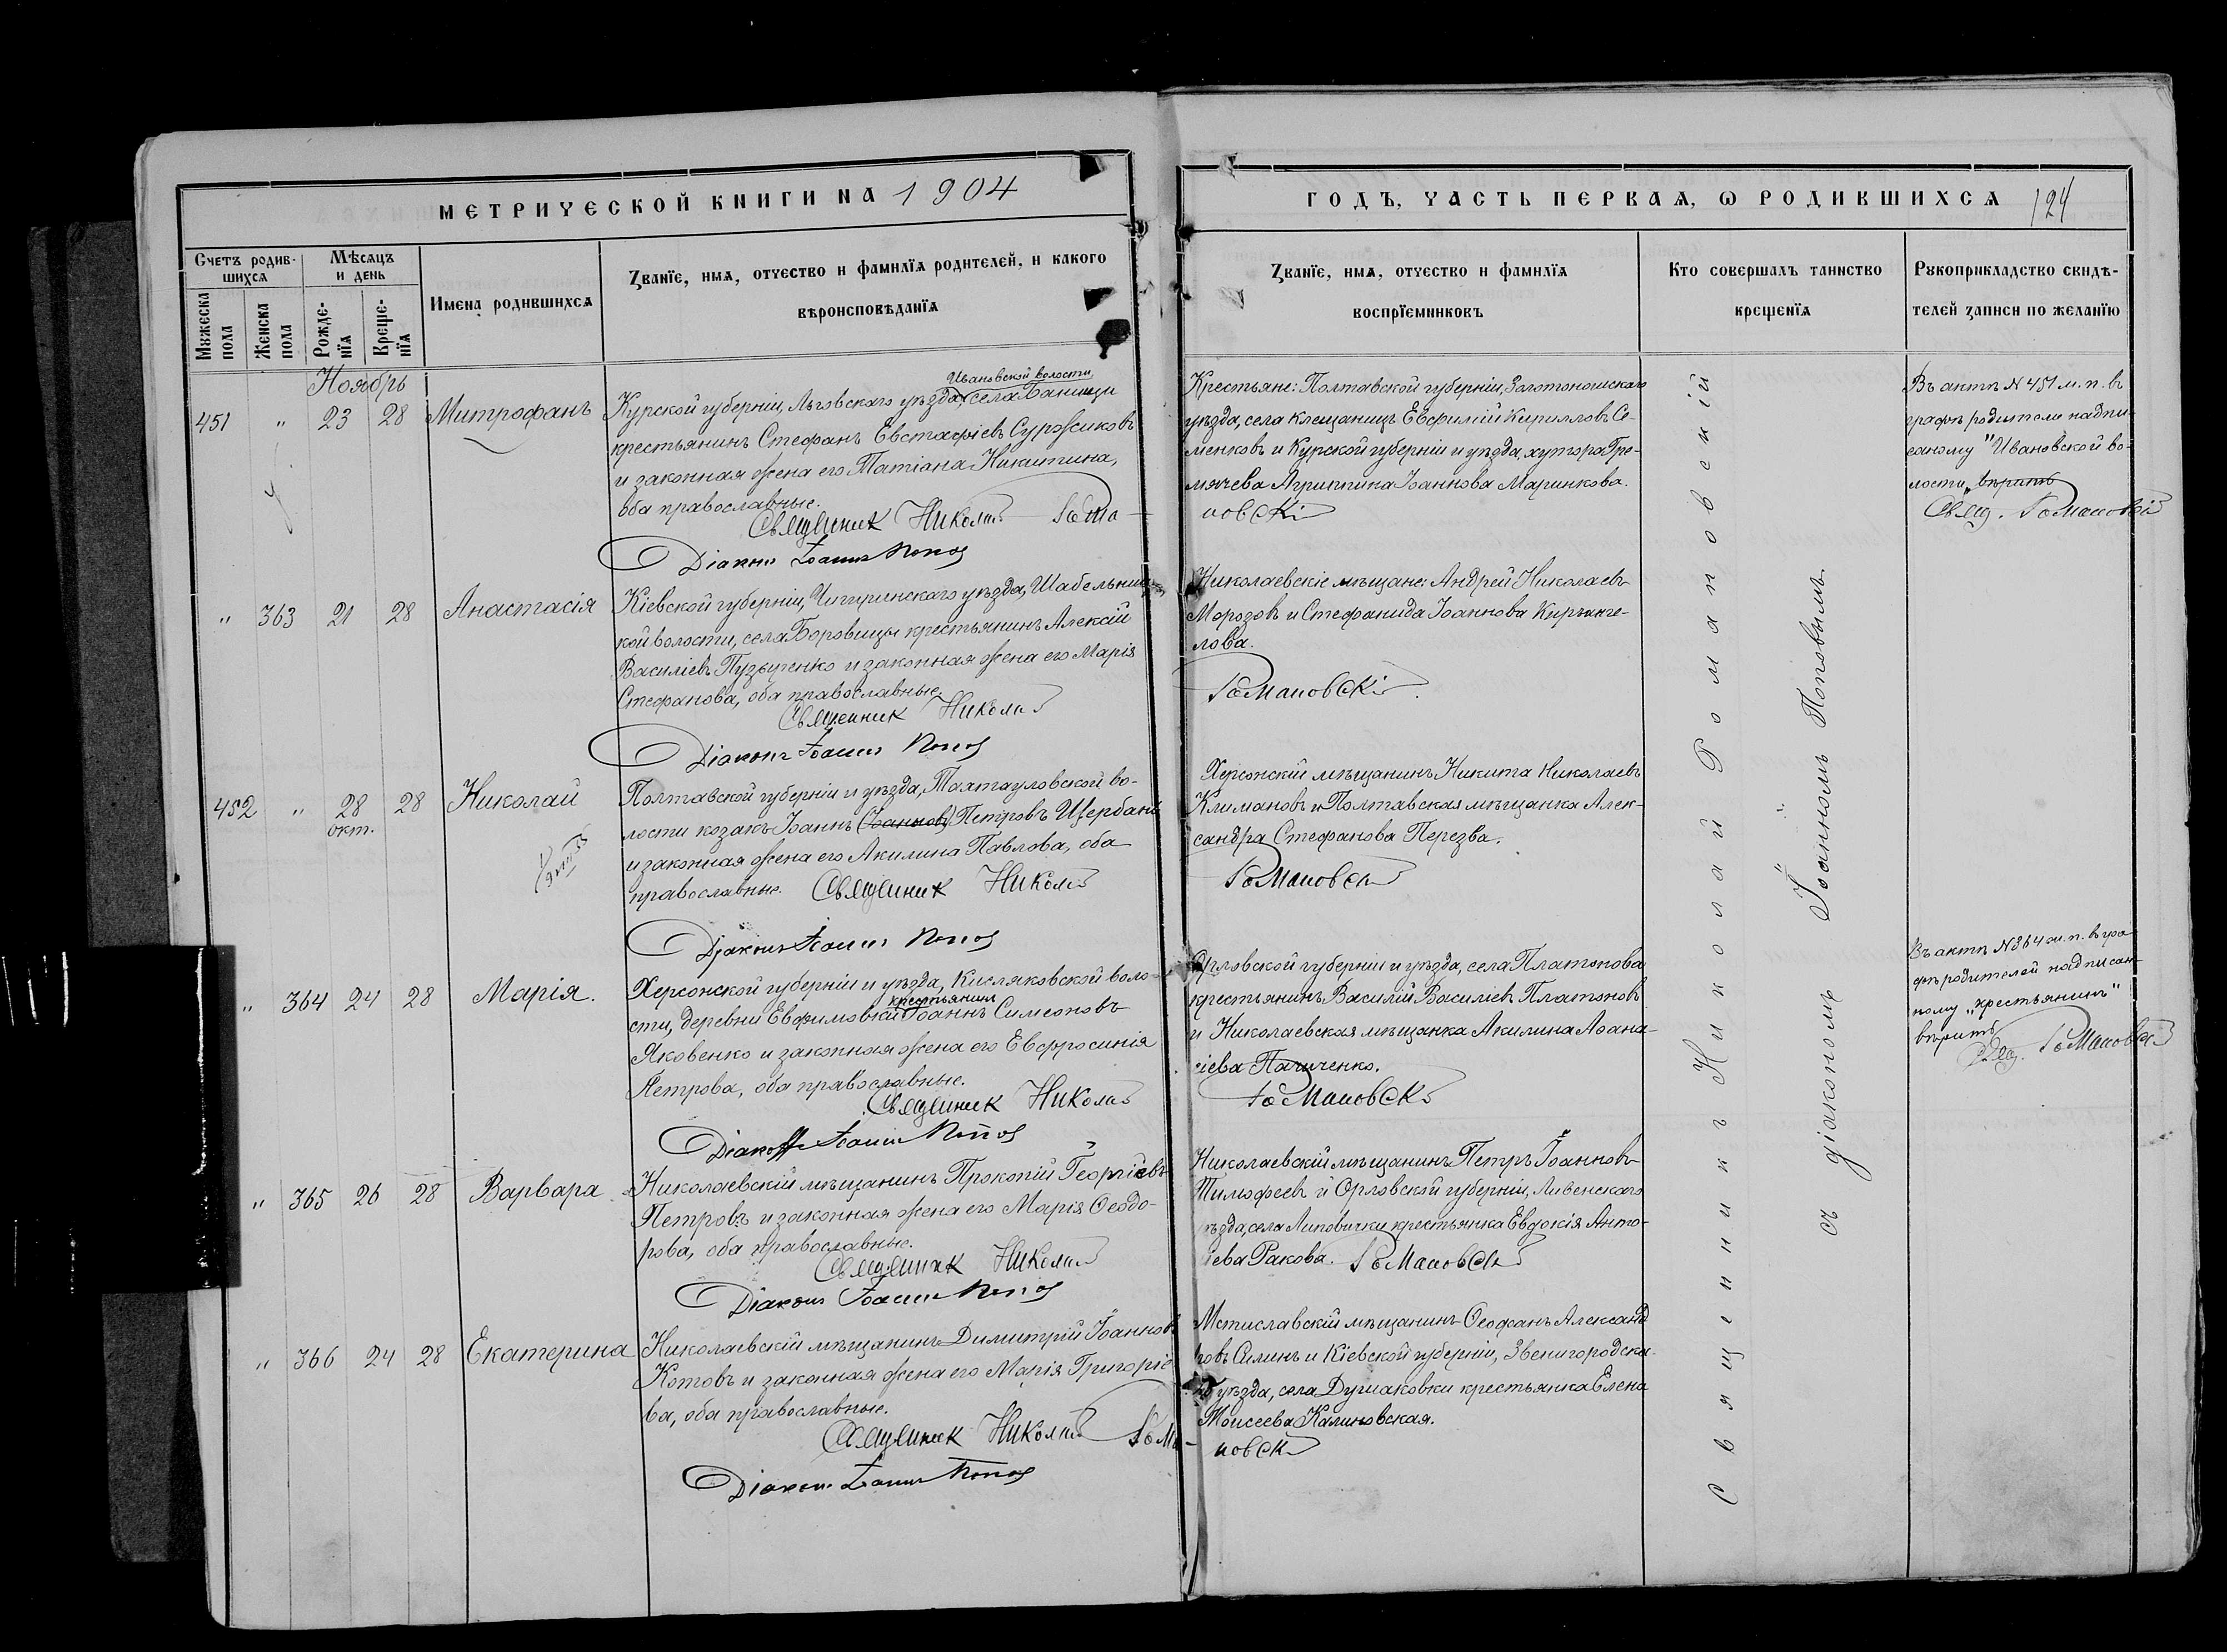 МЕТРИЧЕСКОЙ КНИГИ НА 1904
ГОДЪ, ЧАСТЬ ПЕРВАѦ, Ѡ РОДИВШИХСѦ
124
Счетъ родив-
шихсѧ
Мѣсѧцъ
и день
Мꙋжеска
пола
Женска
пола
Рожде-
нїѧ
Креще-
нїѧ
Имена родившихсѧ
Званїе, имѧ, отчество и фамилїѧ родителей, и какого
вѣроисповѣданїѧ
Званїе, имѧ, отчество и фамилїѧ
воспрїемниковъ
Кто совершалъ таинство
крещенїѧ
Рꙋкоприкладство свидѣ-
телей записи по желанїю
Ноябрь
451 " 23 28 Митрофанъ
Ивановской волости
Курской губерніи, Льговскаго уѣзда, села Банищи
крестьянинъ Стефанъ Евстафіевъ Суржиковъ
и законная жена его Татіана Никитина,
оба православные.
Священникъ Николай Рома-
новскій
Діаконъ Іоаннъ Поповъ
Крестьяне: Полтавской губерніи, Золотоношскаго
уѣзда, села Клещаницъ Евфилій Кирилловъ Се-
менковъ и Курской губерніи и уѣзда, хутора Гре-
мячева Агриппина Іоаннова Маринкова.
Въ актѣ N 451 м. п. въ
графѣ родители надпи-
саному "Ивановской во-
лости" вѣрить
Свящ. Романовскій
" 363 21 28 Анастасія
Кіевской губерніи, Чигиринскаго уѣзда, Шабельниц-
кой волости, села Боровицы крестьянинъ Алексій
Василіевъ Пузыренко и законная жена его Марія
Стефанова, оба православные.
Священникъ Николай
Діаконъ Іоаннъ Поповъ
Николаевскіе мѣщане: Андрей Николаевъ
Морозовъ и Стефанида Іоаннова Кирьянге-
лова.
Романовскій.
452 " 28 окт. 28 Николай
Полтавской губерніи и уѣзда, Тахтауловской во-
лости козакъ Іоаннъ (Іоанновъ) Петровъ Щербань
и законная жена его Акилина Павлова, оба
православные. Священникъ Николай
Діаконъ Іоаннъ Поповъ
Херсонскій мѣщанинъ Никита Николаевъ
Климановъ и Полтавская мѣщанка Алек-
сандра Стефанова Перезва.
Романовскій
" 364 24 28 Марія.
Херсонской губерніи и уѣзда, Кисляковской воло-
крестьянинъ
сти, деревни Евфимовки Іоаннъ Симеоновъ
Яковенко и законная жена его Евфросинія
Петрова, оба православные.
Священникъ Николай
Діаконъ Іоаннъ Поповъ
Орловской губерніи и уѣзда, села Платонова
крестьянинъ Василій Василіевъ Платоновъ
и Николаевская мѣщанка Акилина Аѳана-
сіева Пагиченко.
Романовскій
Въ актѣ N 364 ж. п. въ гра-
фѣ родителей надписан-
ному "крестьянинъ"
вѣрить
Свящ. Романовскій
" 365 26 28 Варвара
Николаевскій мѣщанинъ Прокопій Георгіевъ
Петровъ и законная жена его Марія Ѳеодо-
рова, оба православные.
Священникъ Николай
Діаконъ Іоаннъ Поповъ
Николаевскій мѣщанинъ Петръ Іоанновъ
Тимофеевъ и Орловской губерніи, Ливенскаго
уѣзда, села Липовички крестьянка Евдокія Анто-
ніева Ракова. Романовскій
" 366 24 28 Екатерина
Николаевскій мѣщанинъ Димитрій Іоанновъ
Котовъ и законная жена его Марія Григоріе-
ва, оба православные.
Священникъ Николай Рома-
новскій
Діаконъ Іоаннъ Поповъ
Мстиславскій мѣщанинъ Ѳеофанъ Александ-
ровъ Силинъ и Кіевской губерніи, Звенигородска-
го уѣзда, села Думаковки крестьянка Елена
Моисеева Калиновская.
Священникъ Николай Романовскій
съ діакономъ Іоанномъ Поповымъ.